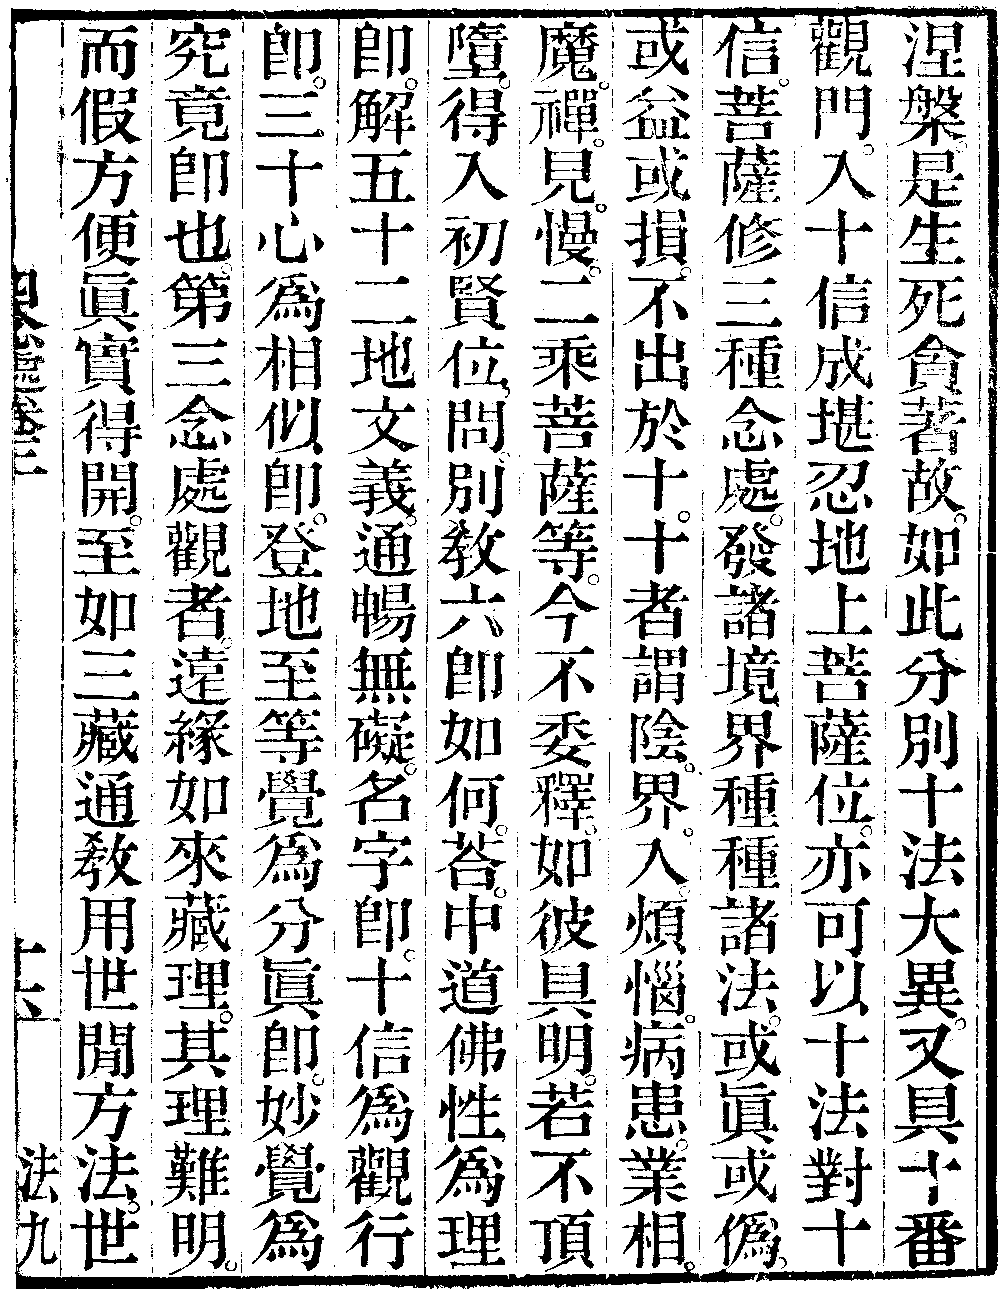 涅槃。是生死貪著故。如此分別十法大異。又具十番
觀門。入十信成堪忍地上菩薩位。亦可以十法對十
信。菩薩修三種念處。發諸境界種種諸法。或眞或僞。
或益或損。不出於十。十者謂陰。界。入。煩惱。病患。業相。
魔。禪。見。慢。二乘菩薩等。今不委釋。如彼具明。若不頂
墮。得入初賢位。問。別教六卽如何。荅。中道佛性爲理
卽。解五十二地文義。通暢無礙。名字卽。十信爲觀行
卽。三十心爲相似卽。登地至等覺爲分眞卽。妙覺爲
究竟卽也。第三念處觀者。遠緣如來藏理。其理難明。
而假方便眞實得開。至如三藏通教用世間方法。世
四念處卷三　十六　法九